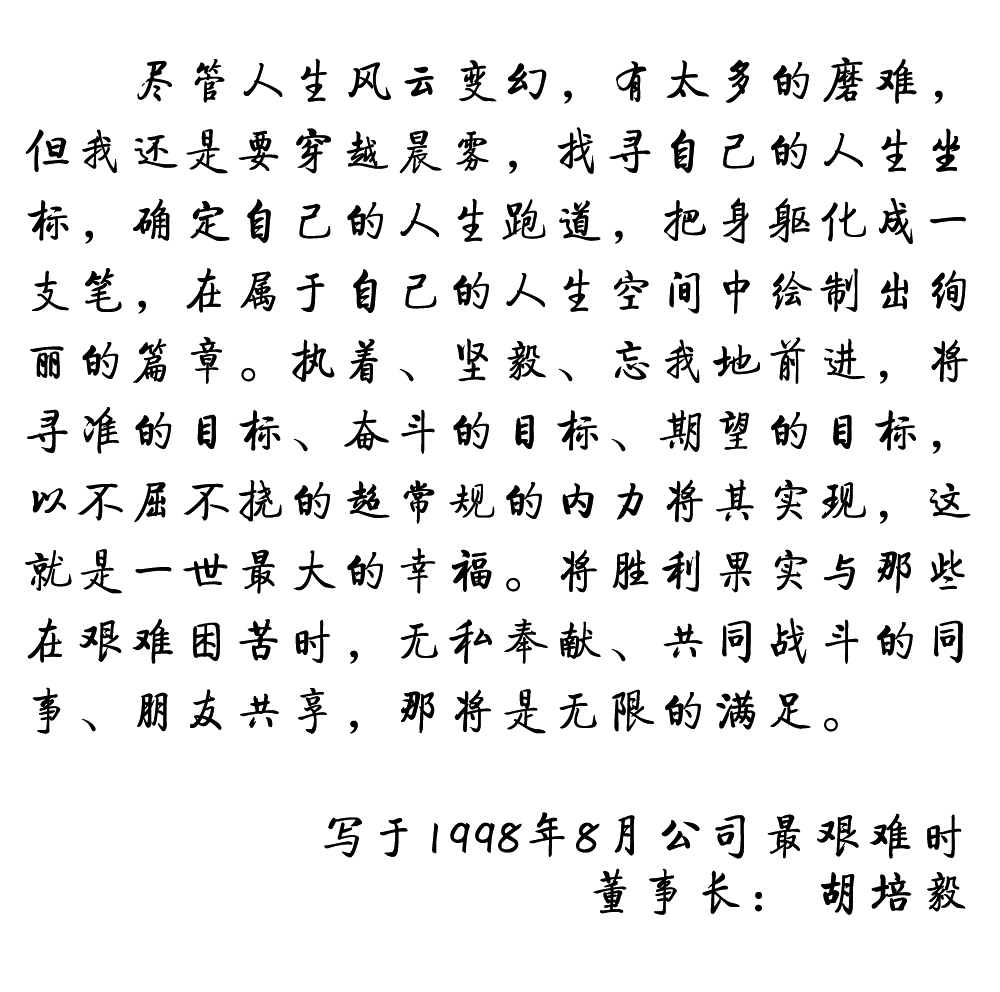 尽管人生风云变幻，有太多的磨难，
但我还是要穿越晨雾，找寻自己的人生坐
标，确定自己的人生跑道，把身躯化成一
支笔，在属于自己的人生空间中绘制出绚
丽的篇章。执着、坚毅、忘我地前进，将
寻准的目标、奋斗的目标、期望的目标，
以不屈不挠的超常规的内力将其实现，这
就是一世最大的幸福。将胜利果实与那些
在艰难困苦时，无私奉献、共同战斗的同
事、朋友共享，那将是无限的满足。
写于1998年8月公司最艰难时
董事长： 胡培毅